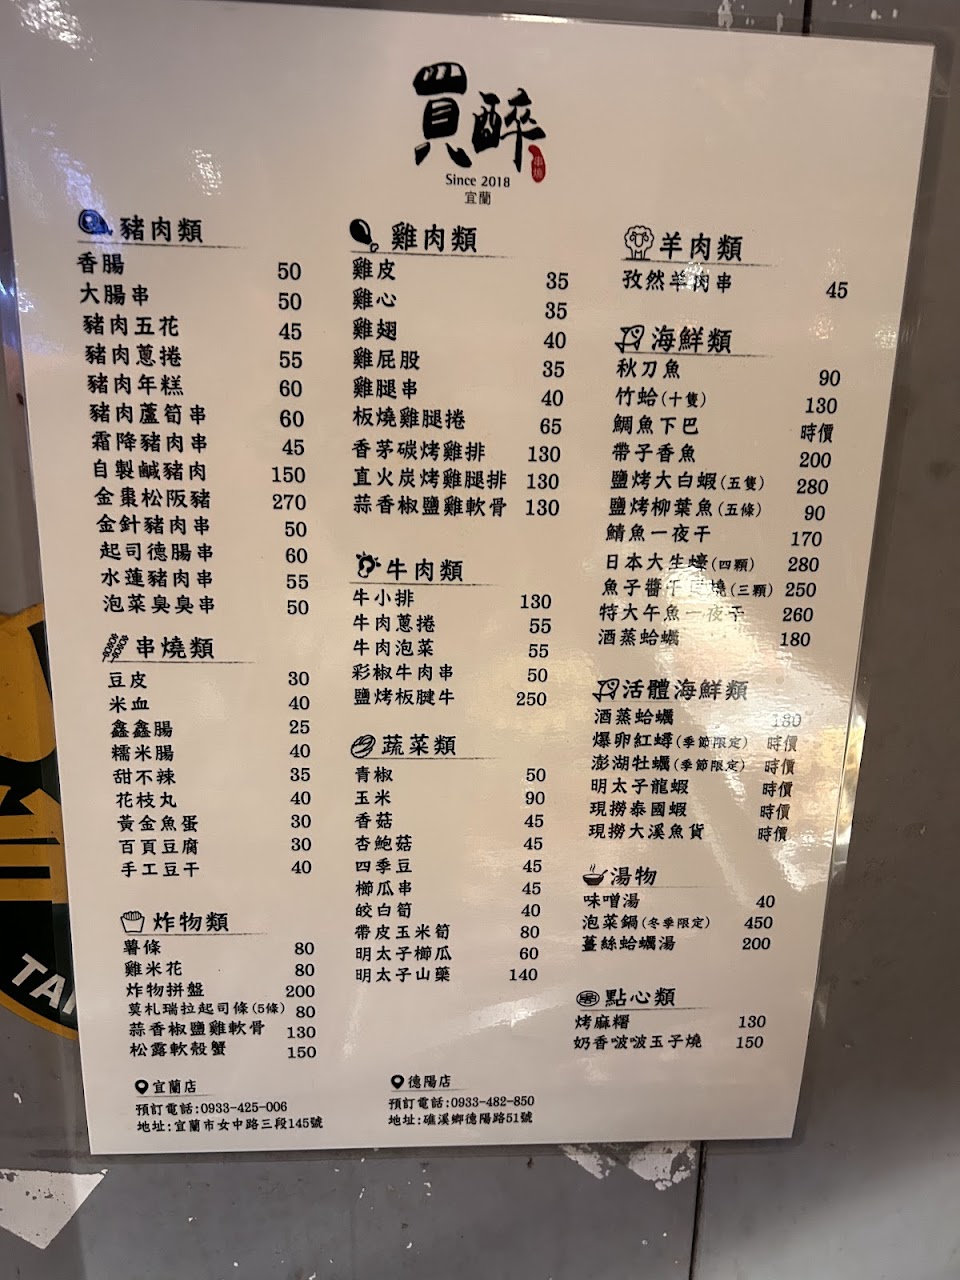 買醉
串燒
Since 2018
宜蘭
豬肉類
香腸 50
大腸串 50
豬肉五花 45
豬肉蔥捲 55
豬肉年糕 60
豬肉蘆筍串 60
霜降豬肉串 45
自製鹹豬肉 150
金棗松阪豬 270
金針豬肉串 50
起司德腸串 60
水蓮豬肉串 55
泡菜臭臭串 50
串燒類
豆皮 30
米血 40
鑫鑫腸 25
糯米腸 40
甜不辣 35
花枝丸 40
黃金魚蛋 30
百頁豆腐 30
手工豆干 40
炸物類
薯條 80
雞米花 80
炸物拼盤 200
莫札瑞拉起司條(5條) 80
蒜香椒鹽雞軟骨 130
松露軟殼蟹 150
雞肉類
雞皮 35
雞心 35
雞翅 40
雞屁股 35
雞腿串 40
板燒雞腿捲 65
香茅碳烤雞排 130
直火炭烤雞腿排 130
蒜香椒鹽雞軟骨 130
牛肉類
牛小排 130
牛肉蔥捲 55
牛肉泡菜 55
彩椒牛肉串 50
鹽烤板腱牛 250
蔬菜類
青椒 50
玉米 90
香菇 45
杏鮑菇 45
四季豆 45
櫛瓜串 45
皎白筍 40
帶皮玉米筍 80
明太子櫛瓜 60
明太子山藥 140
羊肉類
孜然羊肉串 45
海鮮類
秋刀魚 90
竹蛤(十隻) 130
鯛魚下巴 時價
帶子香魚 200
鹽烤大白蝦(五隻) 280
鹽烤柳葉魚(五條) 90
鯖魚一夜干 170
日本大生蠔(四顆) 280
魚子醬干貝燒(三顆) 250
特大午魚一夜干 260
酒蒸蛤蠣 180
活體海鮮類
酒蒸蛤蠣 180
爆卵紅蟳(季節限定) 時價
澎湖牡蠣(季節限定) 時價
明太子龍蝦 時價
現撈泰國蝦 時價
現撈大溪魚貨 時價
湯物
味噌湯 40
泡菜鍋(冬季限定) 450
薑絲蛤蠣湯 200
點心類
烤麻糬 130
奶香啵啵玉子燒 150
宜蘭店
預訂電話:0933-425-006
地址:宜蘭市女中路三段145號
德陽店
預訂電話:0933-482-850
地址:礁溪鄉德陽路51號
TAI